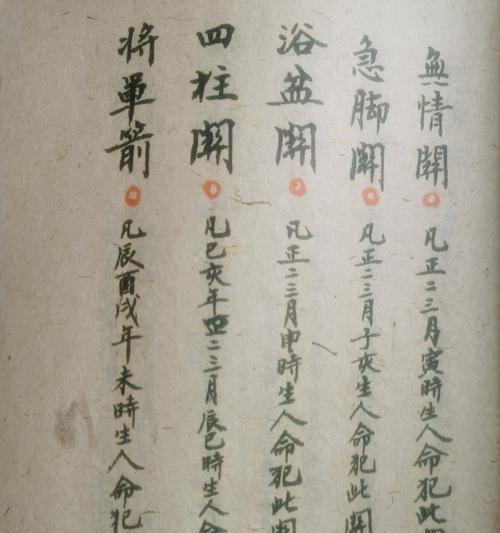 無情関 凡正二三月寅時生人命犯此関
急脚関 凡正二三月子亥生人命犯此関
浴盆関 凡正二三月申時生人命犯此関
四柱関 凡巳亥年四二三月辰巳時生人命
将軍箭 凡辰酉戌年未時生人命犯